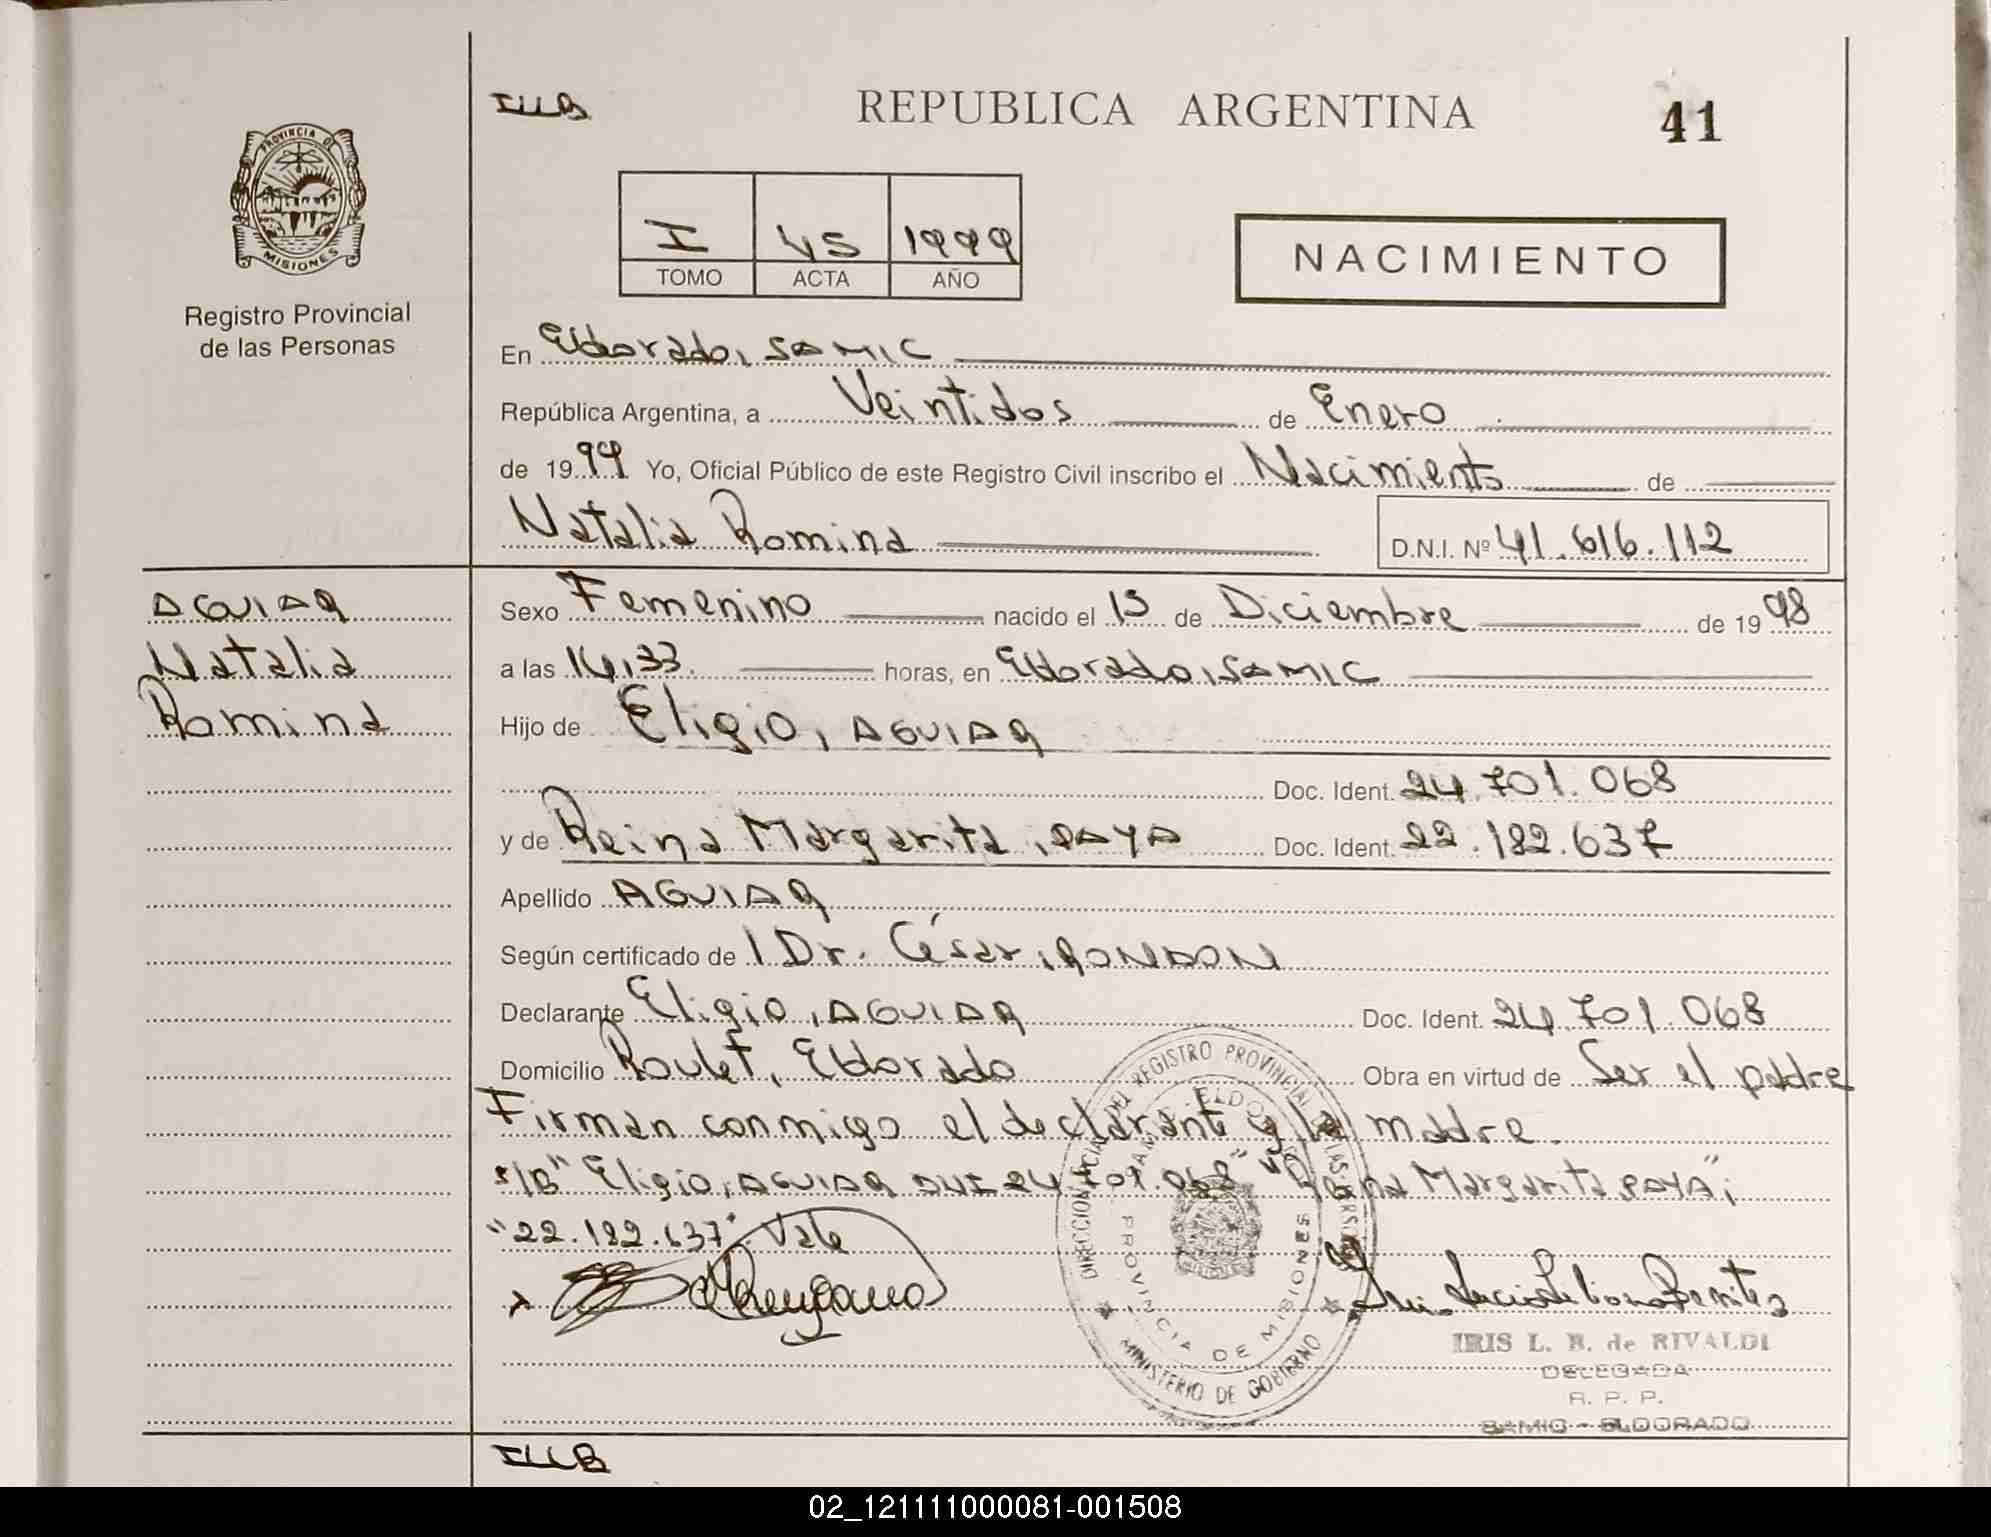 ILLB
REPUBLICA ARGENTINA
41
PROVINCIA DE
MISIONES
Registro Provincial
de las Personas
I 45 1999
TOMO ACTA AÑO
NACIMIENTO
En Eldorado, SAMIC
República Argentina, a Veintidos de Enero
de 1999 Yo, Oficial Público de este Registro Civil inscribo el Nacimiento de
Natalia Romina D.N.I. Nº 41.616.112
AGUIAR
Natalia
Romina
Sexo Femenino nacido el 15 de Diciembre de 1998
a las 14,33. horas, en Eldorado, SAMIC
Hijo de Eligio, AGUIAR
Doc. Ident. 24.701.068
y de Reina Margarita, PAYA Doc. Ident. 22.182.637
Apellido AGUIAR
Según certificado de Dr. César, RONDON
Declarante Eligio, AGUIAR Doc. Ident. 24.701.068
Domicilio Roulet, Eldorado Obra en virtud de Ser el padre
Firman conmigo el declarante y la madre.
s/b "Eligio, AGUIAR DNI 24.701.068" "Reina Margarita, PAYA";
"22.182.637" Vale
DIRECCION DEL REGISTRO PROVINCIAL DE LAS PERSONAS
ELDORADO
PROVINCIA DE MISIONES
MINISTERIO DE GOBIERNO
IRIS L. B. de RIVALDI
DELEGADA
R. P. P.
SAMIC - ELDORADO
ILLB
02_121111000081-001508